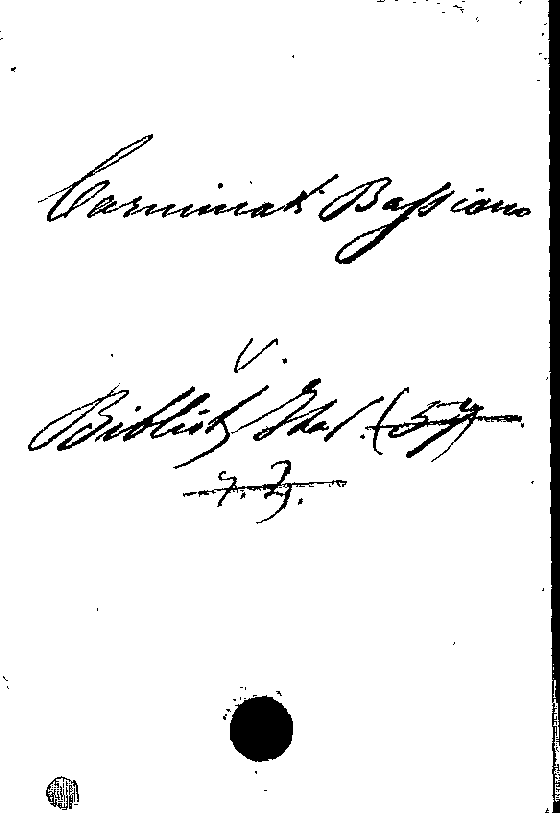 Carminati Bassiano
V.
Bibliot. Ital. (57)
7. 3.